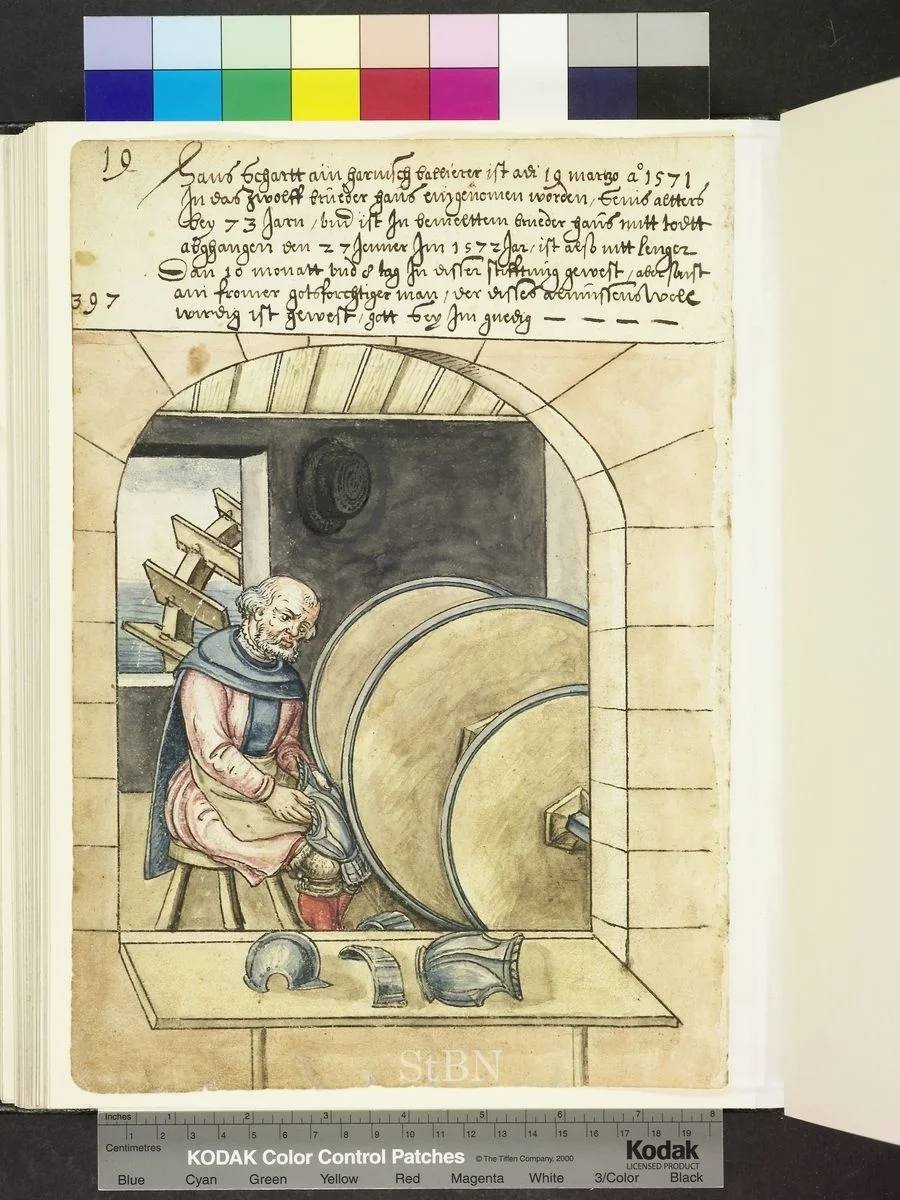 19
Hans Schartt ain harnisch ballierer ist adi 19 martzo aº 1571
In das Zwolff brüeder haus eingenomen worden, seins altters
bey 73 Jarn, vnd ist In bemelttem brueder haus mitt todtt
abghangen den 27 Jenner Im 1572 Jar, ist also nitt lenger
Dan 10 monatt vnd 8 tag In disser stifttung gewest, aber sonst
397
ain fromer gotsforchtiger man, der disses almussens woll
wirdig ist gewest, gott sey Im gnedig — — — —
StBN
Inches 1 2 3 4 5 6 7 8
1 2 3 4 5 6 7 8 9 10 11 12 13 14 15 16 17 18 19
Centimetres
KODAK Color Control Patches © The Tiffen Company, 2000
Kodak
LICENSED PRODUCT
Blue Cyan Green Yellow Red Magenta White 3/Color Black